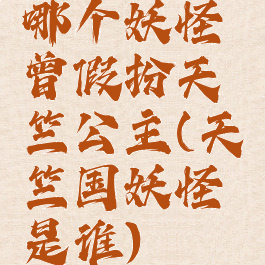 哪个妖怪
曾假扮天
竺公主(天
竺国妖怪
是谁)